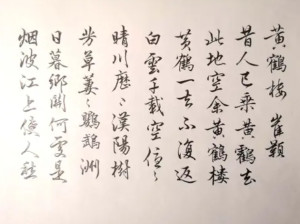 黄鶴樓 崔顥
昔人已乘黄鶴去
此地空余黄鶴樓
黄鶴一去不復返
白雲千載空悠〻
晴川歷〻漢陽樹
芳草萋〻鸚鵡洲
日暮鄉關何處是
烟波江上使人愁